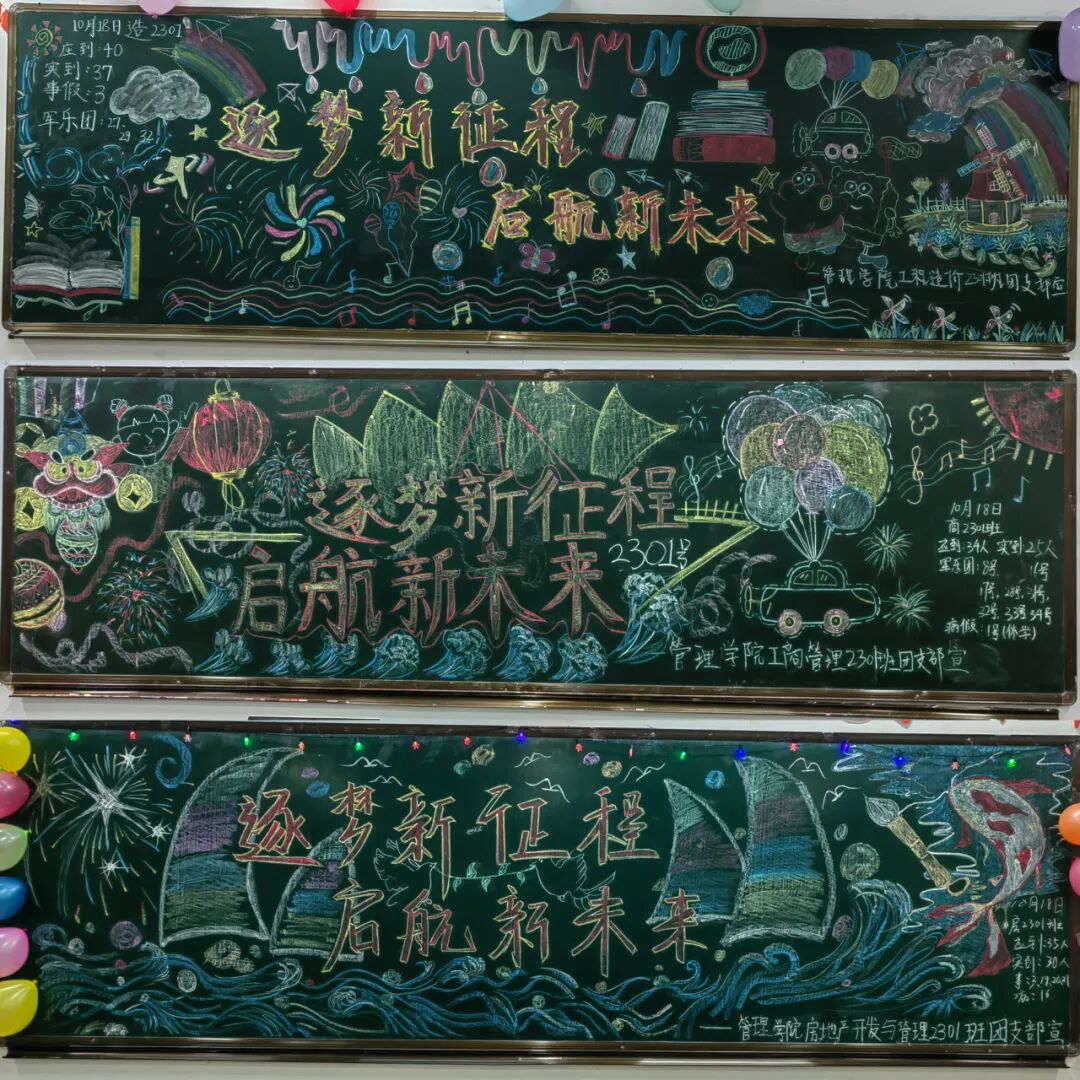 10月18日 造2301
应到:40
实到:37
事假:3
军乐团:27
29 32
逐梦新征程
启航新未来
管理学院工程造价2301班团支部宣
逐梦新征程
启航新未来
2301号
10月18日
商2301班
应到:34人 实到25人
军乐团:8号
1号
32号 33号 34号
病假:1号(休学)
管理学院工商管理2301班团支部宣
逐梦新征程
启航新未来
10月18日
房2301班
应到:35人
实到:30人
病:16
管理学院房地产开发与管理2301班团支部宣